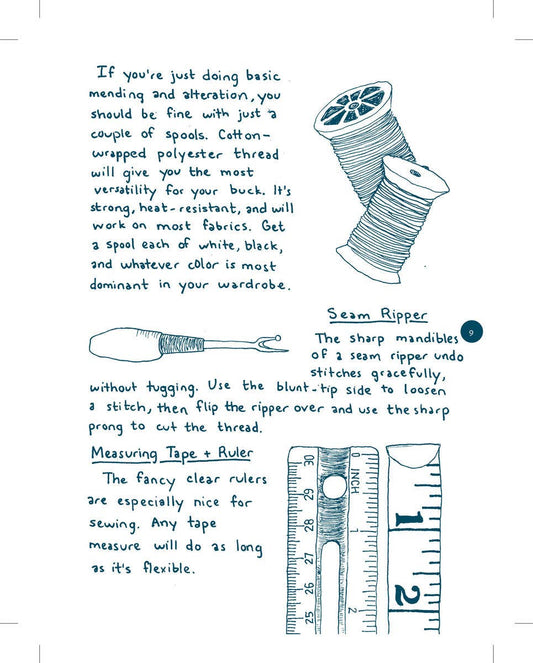 If you're just doing basic
mending and alteration, you
should be fine with just a
couple of spools. Cotton-
wrapped polyester thread
will give you the most
versatility for your buck. It's
strong, heat-resistant, and will
work on most fabrics. Get
a spool each of white, black,
and whatever color is most
dominant in your wardrobe.
Seam Ripper
9
The sharp mandibles
of a seam ripper undo
stitches gracefully,
without tugging. Use the blunt-tip side to loosen
a stitch, then flip the ripper over and use the sharp
prong to cut the thread.
Measuring Tape + Ruler
The fancy clear rulers
are especially nice for
sewing. Any tape
measure will do as long
as it's flexible.
30
29
28
27
26
25
0 INCH
1
2
1
2